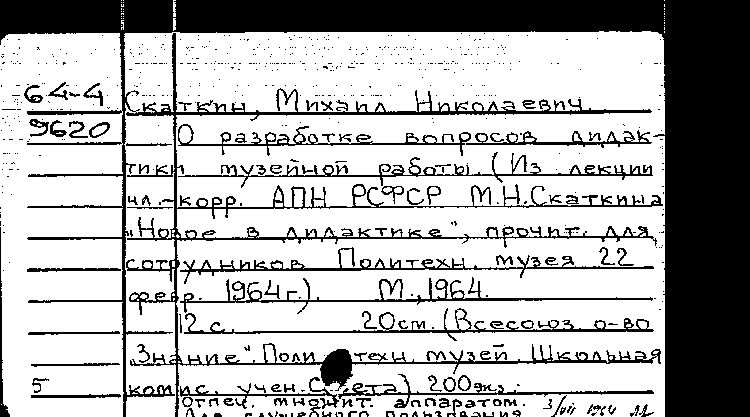 64-4 Скаткин, Михаил Николаевич.
9620 О разработке вопросов дидак-
тики музейной работы. (Из лекции
чл.-корр. АПН РСФСР М.Н.Скаткина
"Новое в дидактике", прочит. для
сотрудников Политехн. музея 22
февр. 1964 г.). М., 1964.
12 с. 20 см. (Всесоюз. о-во
"Знание". Политехн. музей. Школьная
5 комис. учен. Совета). 200 экз.
Отпеч. множит. аппаратом.
Для служебного пользования 3/VII 1964